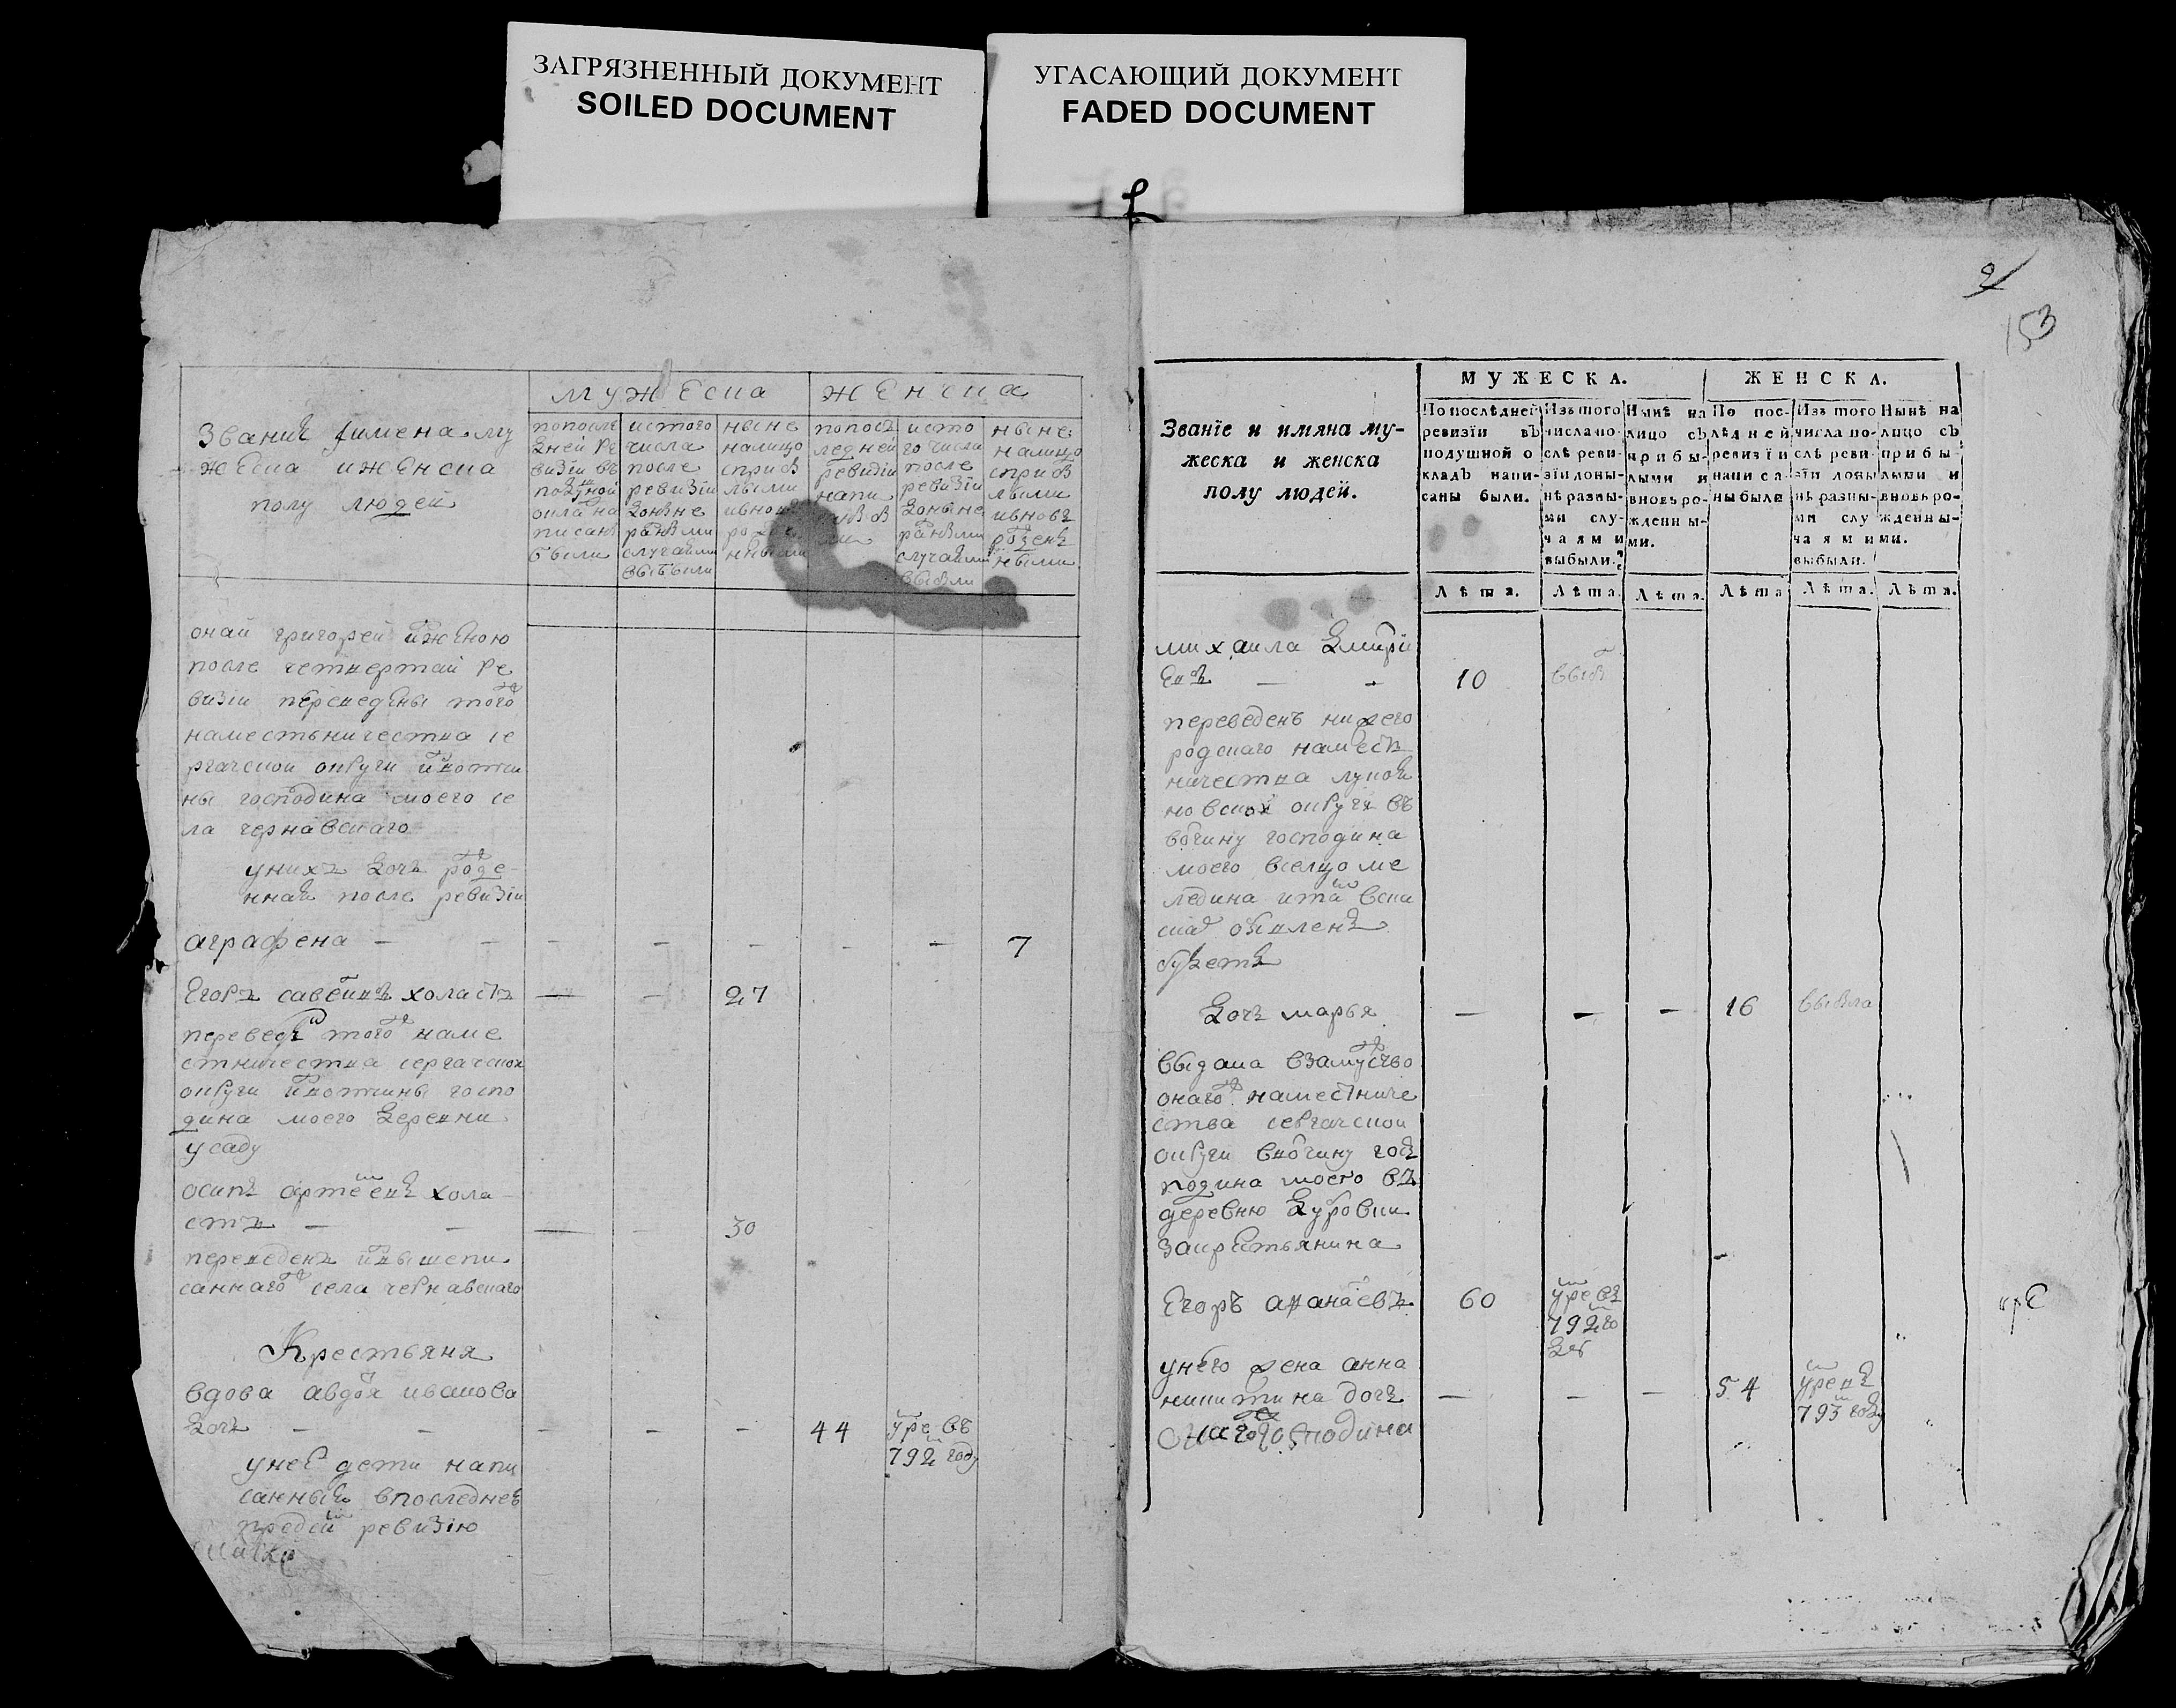 ЗАГРЯЗНЕННЫЙ ДОКУМЕНТ
SOILED DOCUMENT
УГАСАЮЩИЙ ДОКУМЕНТ
FADED DOCUMENT
мужеска
женска
Звание имена му
жеска и женска
полу людей
попосле
дней ре
визiи въ
подушной
окла на
писаны
были
истого
числа
после
ревизiи
случаями
выбыли
ныне
налицо
сприб
лыми
попосл
ледней
ревизiи
напи
исто
го числа
после
ревизiи
случаями
ныне
налицо
сприб
лыми
ивновь
рожден
ными
онай григорей зженою
после четвертай ре
визiи переведены того
наместьничества се
ргачской округи вотчи
ны господина моего се
ла чернавскаго
унихъ дочь рожде
нная после ревизiи
аграфена - - - - - - - 7
Егоръ савельевъ холастъ - - 27
переведенъ того наме
стничества сергачской
округи вотчины госпо
дина моего деревни
усаду
осипъ артемевъ хола
стъ - - - - 30
переведенъ извышепи
саннаго села чернавскаго
Крестьяня
вдова авдотья иванова
дочь - - - - - 44 умре въ
792 году
унее дети напи
санныя впоследнею
предъ сей ревизiю
2
153
Званiе и имяна му-
жеска и женска
полу людей.
МУЖЕСКА.
ЖЕНСКА.
По послѣдней
ревизiи въ
подушной о
кладъ напи-
саны были.
Изъ того
числа по-
слѣ реви-
зiи доны-
нѣ разны-
ми слу-
чаями
выбыли.
Нынѣ на
лицо съ
прибы-
лыми и
вновь ро-
жденны-
ми.
По пос-
лѣдней
ревизiи
написа-
ны были
Изъ того
числа по-
слѣ реви-
зiи доны
нѣ разны-
ми слу
чаями
выбыли.
Нынѣ на
лицо съ
прибы
лыми и
вновь ро-
жденны-
ми.
Лѣта. Лѣта. Лѣта. Лѣта Лѣта. Лѣта.
михаила дмитрi
евъ - - 10 выб
переведенъ нижего
родскаго намест
ничества лукоя
новской округи въ
вотчину господина
моего вселцо ме
ледина
Дочь марья - - - 16 выбыла
выдана взамужство
онаго наместниче
ства сергачской
округи ввотчину гос
подина моего въ
деревню Дубровки
закрестьянина
Егоръ афанасевъ 60 умре въ
792 го
ду
унего жена анна
никитина дочь - - - 54 умре въ
793 году
онаго господина